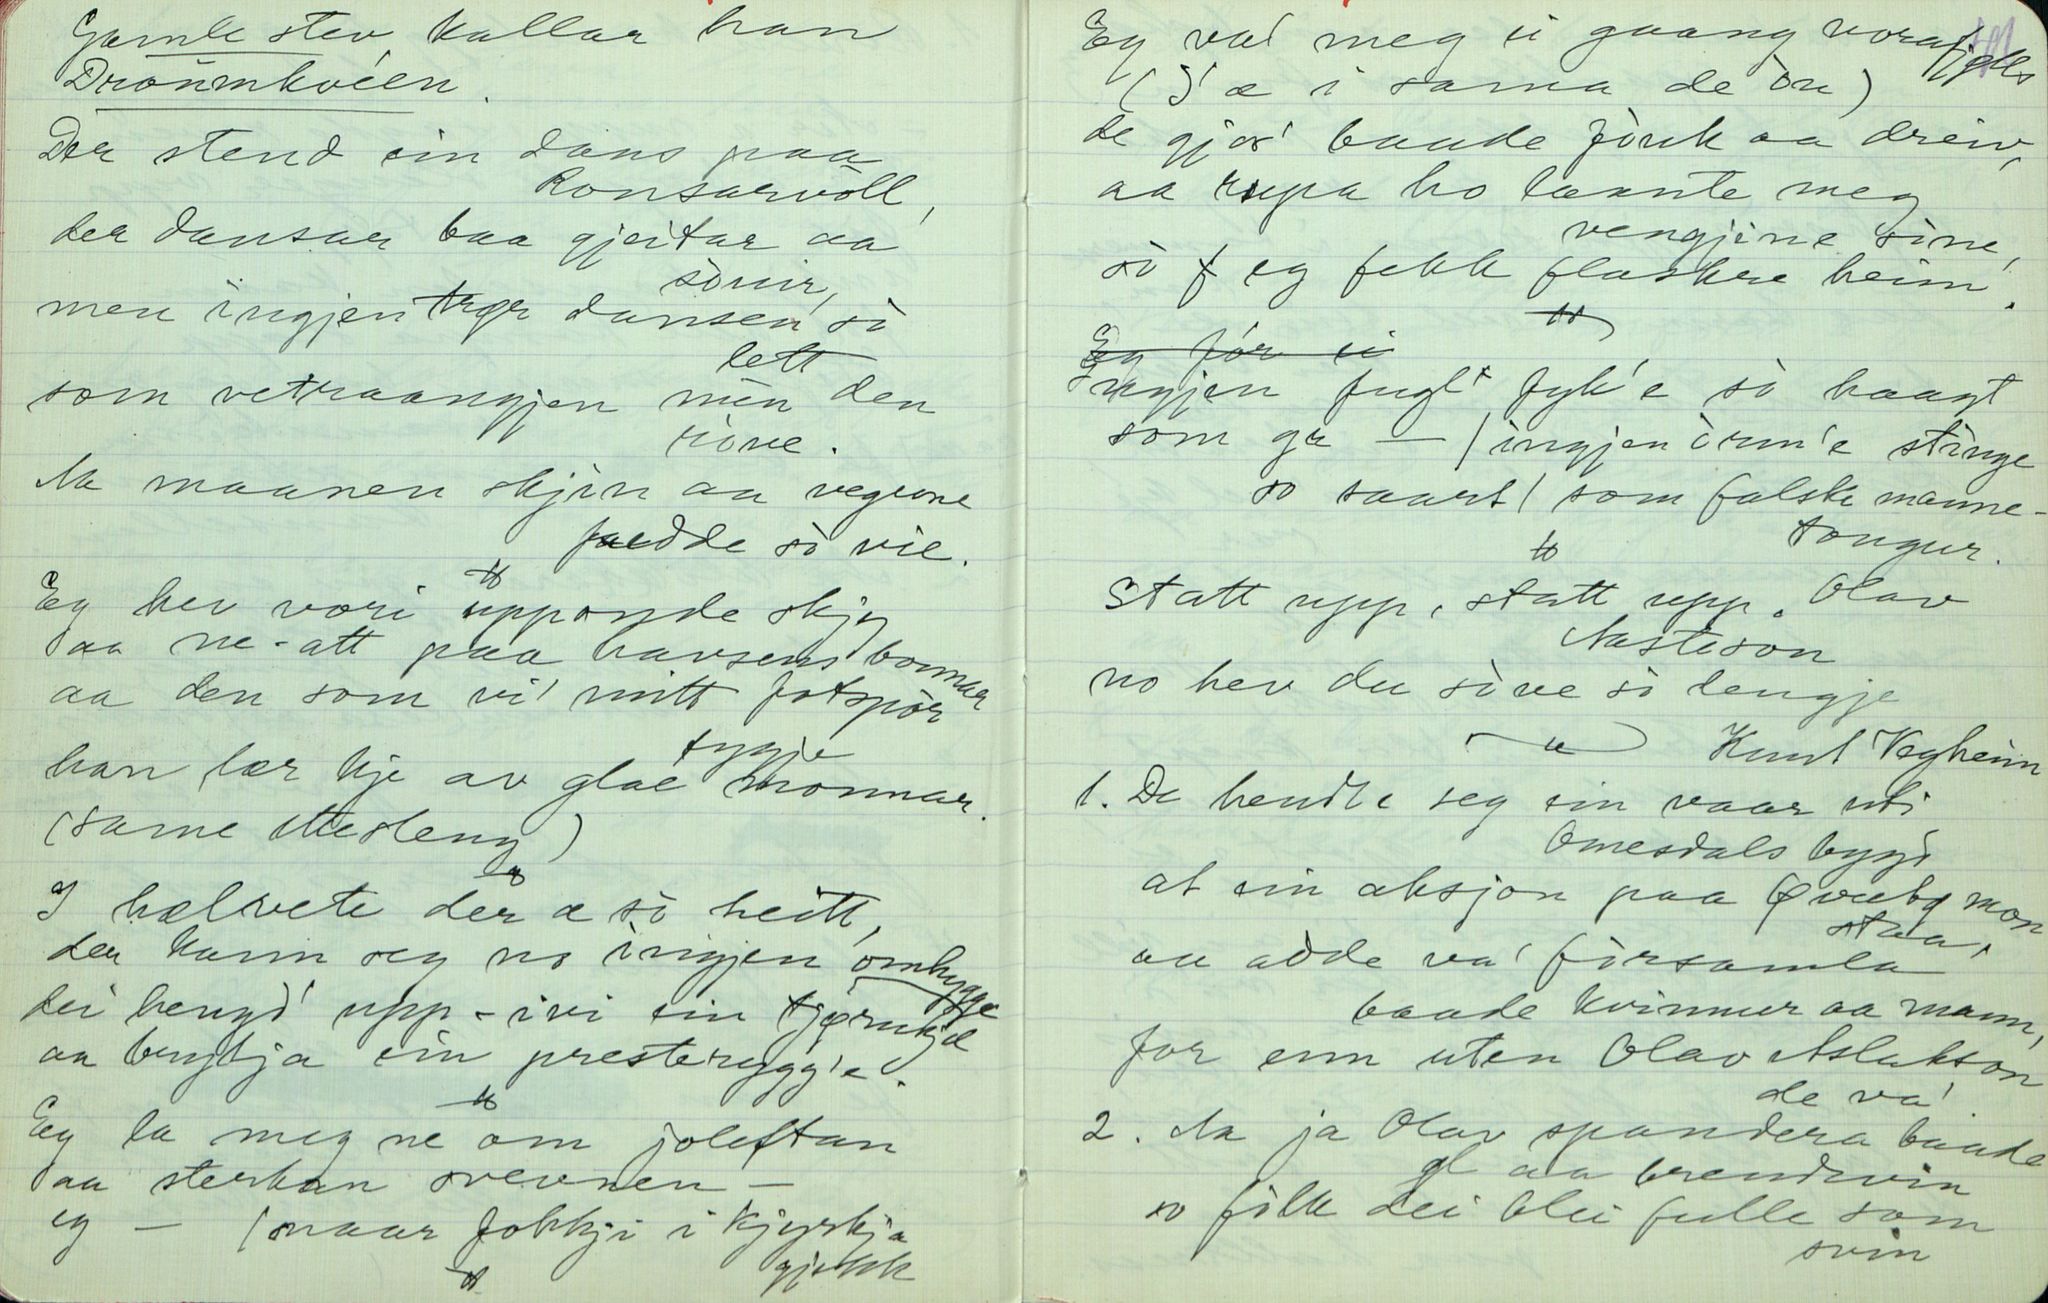 Gamle stev kallar han
Draumkvéen.
Der stend ein dans paa
Ronsarvöll,
der dansar baa gjeitar aa
sòuir,
men ingjen trør dansen' sò
lett
som vetraangjen mèn den
ròve.
Aa maanen skjin aa vegjine
fædde sò vie.
Eg hev vori uppunde sky
aa ne-att paa havsens bonnar
aa den som vi' mitt fotspòr
tygje
han lær kje av glae monnar.
(same Mesteng)
I hælvete der æ sò heitt,
der kann seg no ingjen omhygge
dei hengd' upp-ivi ein tjørukjel
aa brytja ein presteryggj'e.
Eg la meg ne om joleftan
aa sterkan svevnen –
eg – (naar fokkji i kjyrkja
gjekk
Eg va' meg ei gaang norafjøls
(D'æ i sama de òr)
de gjor' baade fòuk aa dreiv,
aa rupa ho laante meg
vengjine sine,
sò eg fekk flaskre heim.
Eg fór ei
Ingjen fugl' fyk'e sò haagt
som gr – / ingjen òrm'e stinge
so saart / som falske manne-
tongur.
Statt upp, statt upp, Olav
Aasteson
no hev du sòve sò lengje
Knut Vegheim
1. De hendte seg ein vaar uti
Omesdals bygd
at ein aksjon paa Øvrebø mon
staa,
aa adde va' fòrsamla
baade kvinnur aa mann,
for enn uten Olav Aslakson
de va'
2. Aa ja Olav spandera baade
øl aa brendevin
so fòlk dei blei fulle som
svin